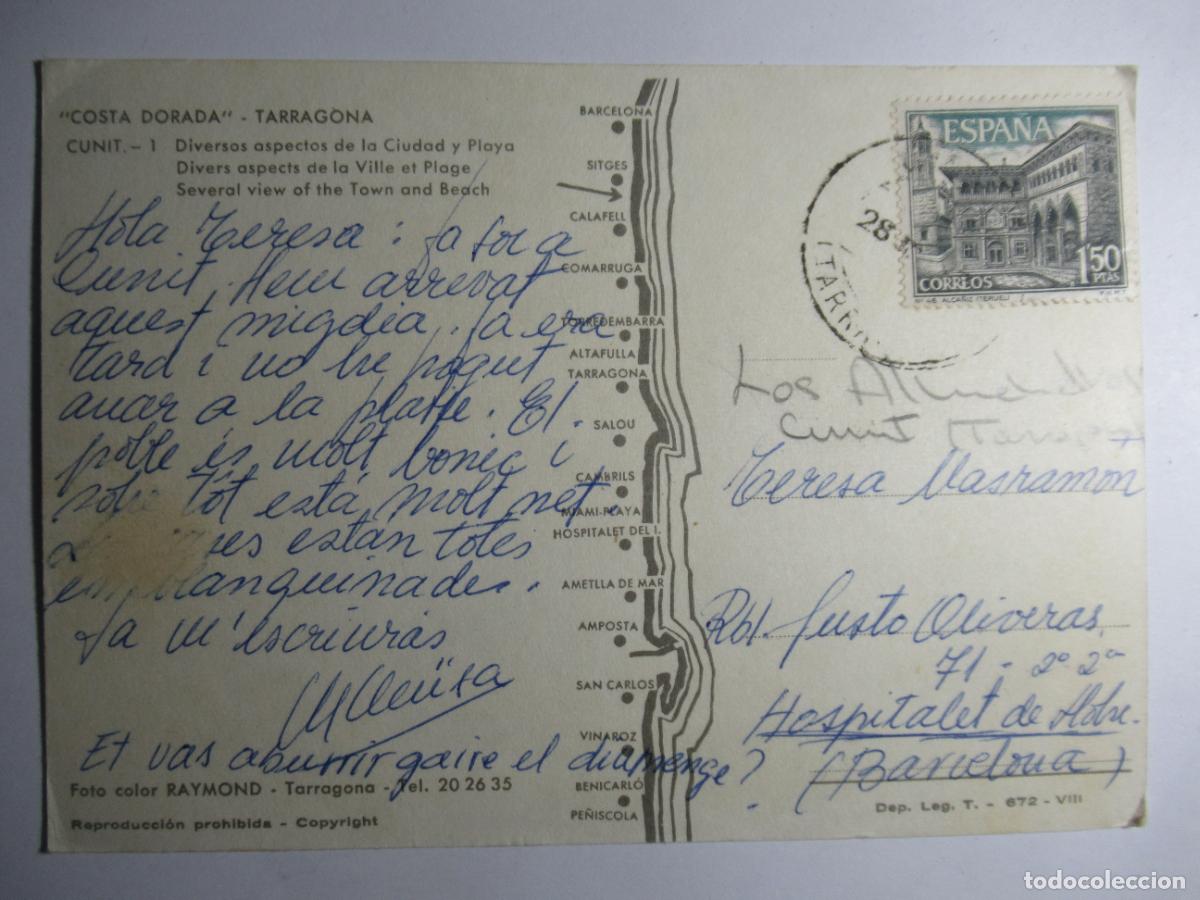 "COSTA DORADA" - TARRAGONA
CUNIT. – 1 Diversos aspectos de la Ciudad y Playa
Divers aspects de la Ville et Plage
Several view of the Town and Beach
Hola Teresa: Ja soc a
Cunit. Hem arrevat
aquest migdia. Ja era
tard i no he pogut
anar a la platje. El
poble és molt bonic i
sobre tot està molt net.
están totes
emblanquinades.
Ja m'escriuràs
Et vas aburrir gaire el diumenge?
Foto color RAYMOND - Tarragona - Tel. 20 26 35
Reproducción prohibida - Copyright
BARCELONA
SITGES
CALAFELL
COMARRUGA
TORREDEMBARRA
ALTAFULLA
TARRAGONA
SALOU
CAMBRILS
MIAMI-PLAYA
HOSPITALET DEL I.
AMETLLA DE MAR
AMPOSTA
SAN CARLOS
VINAROZ
BENICARLÓ
PEÑISCOLA
ESPAÑA
1'50 PTAS
CORREOS
Aº DE ALCAÑIZ (TERUEL)
F.N.M.T.
28
(TARR
Los
Cunit
Teresa Masramon
Rbl. Justo Oliveras,
71 - 2º 2ª
Hospitalet de Llobre.
(Barcelona)
Dep. Leg. T. - 672 - VIII
todocoleccion